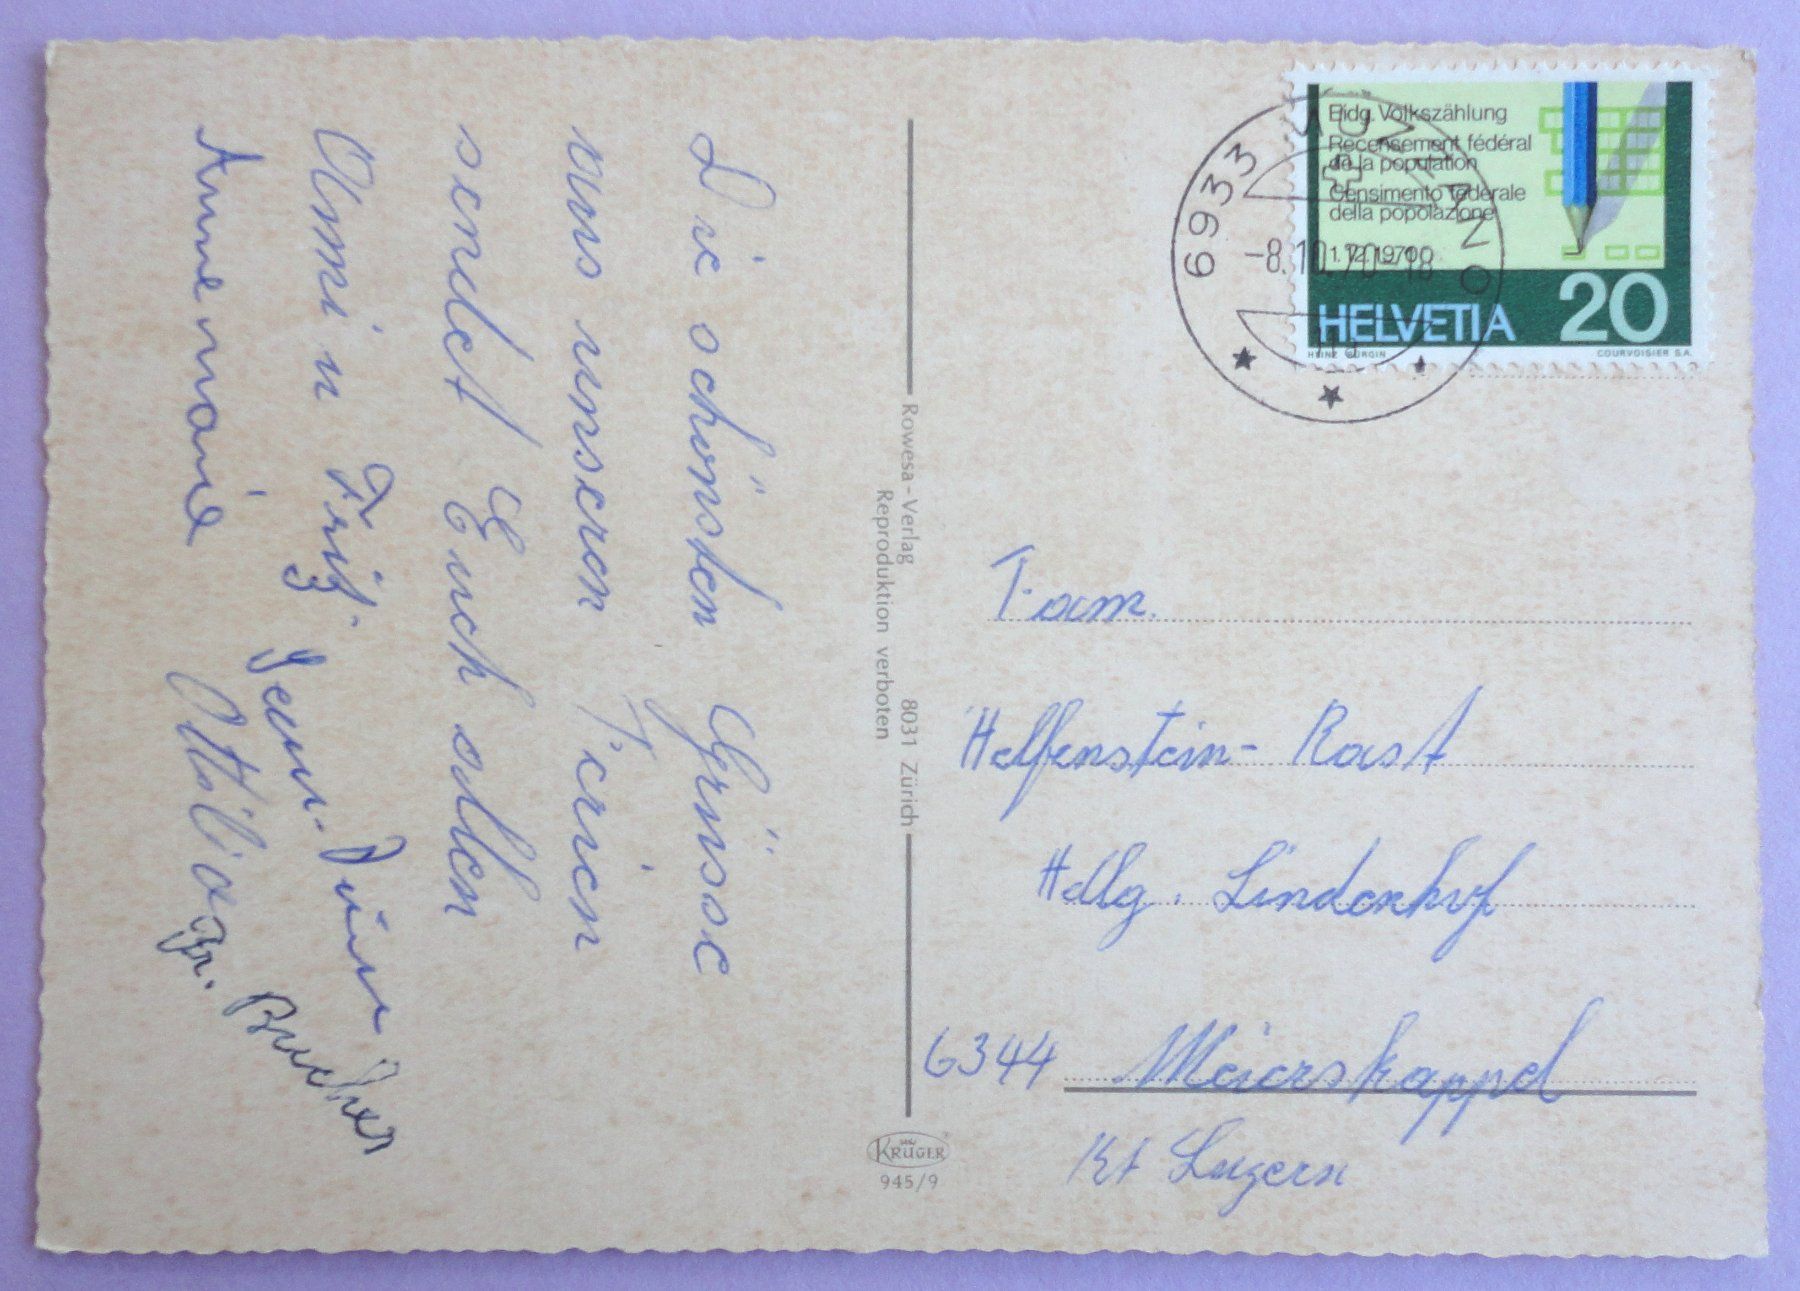 Die schönsten Grüsse
aus unseren Ferien
sendet Euch allen
Omi u Fritz.
Annemarie
Ottilia
Fr. Bucher
Rowesa-Verlag 8031 Zürich
Reproduktion verboten
KRÜGER
945/9
6933 MUZZANO
-8.10.70-18
Eidg. Volkszählung
Recensement fédéral
de la population
Censimento federale
della popolazione
1.12.1970
HELVETIA 20
HEINZ BÜRGIN COURVOISIER S.A.
Fam.
Helfenstein-Rast
Hellg. Lindenhof
6344 Meierskappel
Kt Luzern